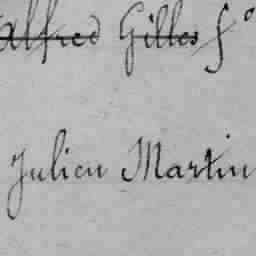 Alfred Gilles fo
Julien Martin